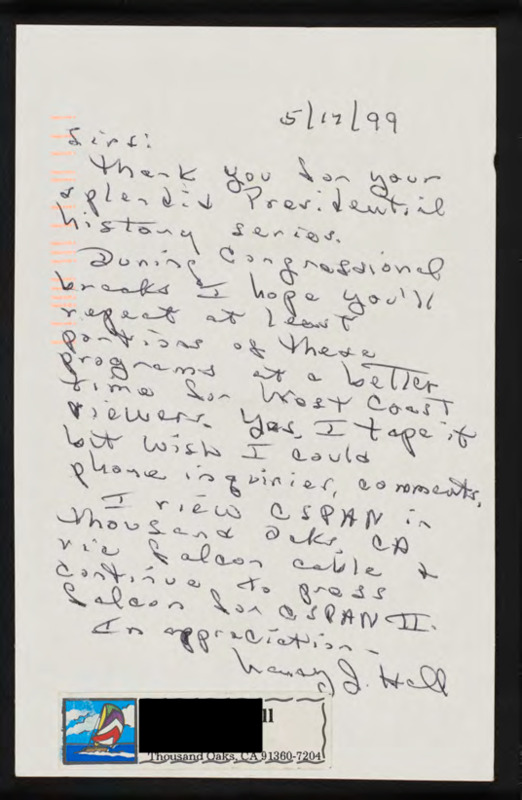 5/17/99
Sirs:
Thank you for your
splendid Presidential
history series.
During Congressional
breaks I hope you'll
repeat at least
portions of these
programs at a better
time for West Coast
viewers. Yes, I tape it
but wish I could
phone inquiries, comments.
I view CSPAN in
Thousand Oaks, CA
via Falcon cable &
continue to press
Falcon for CSPAN II.
In appreciation -
Nancy J. Hall
ll
Thousand Oaks, CA 91360-7204